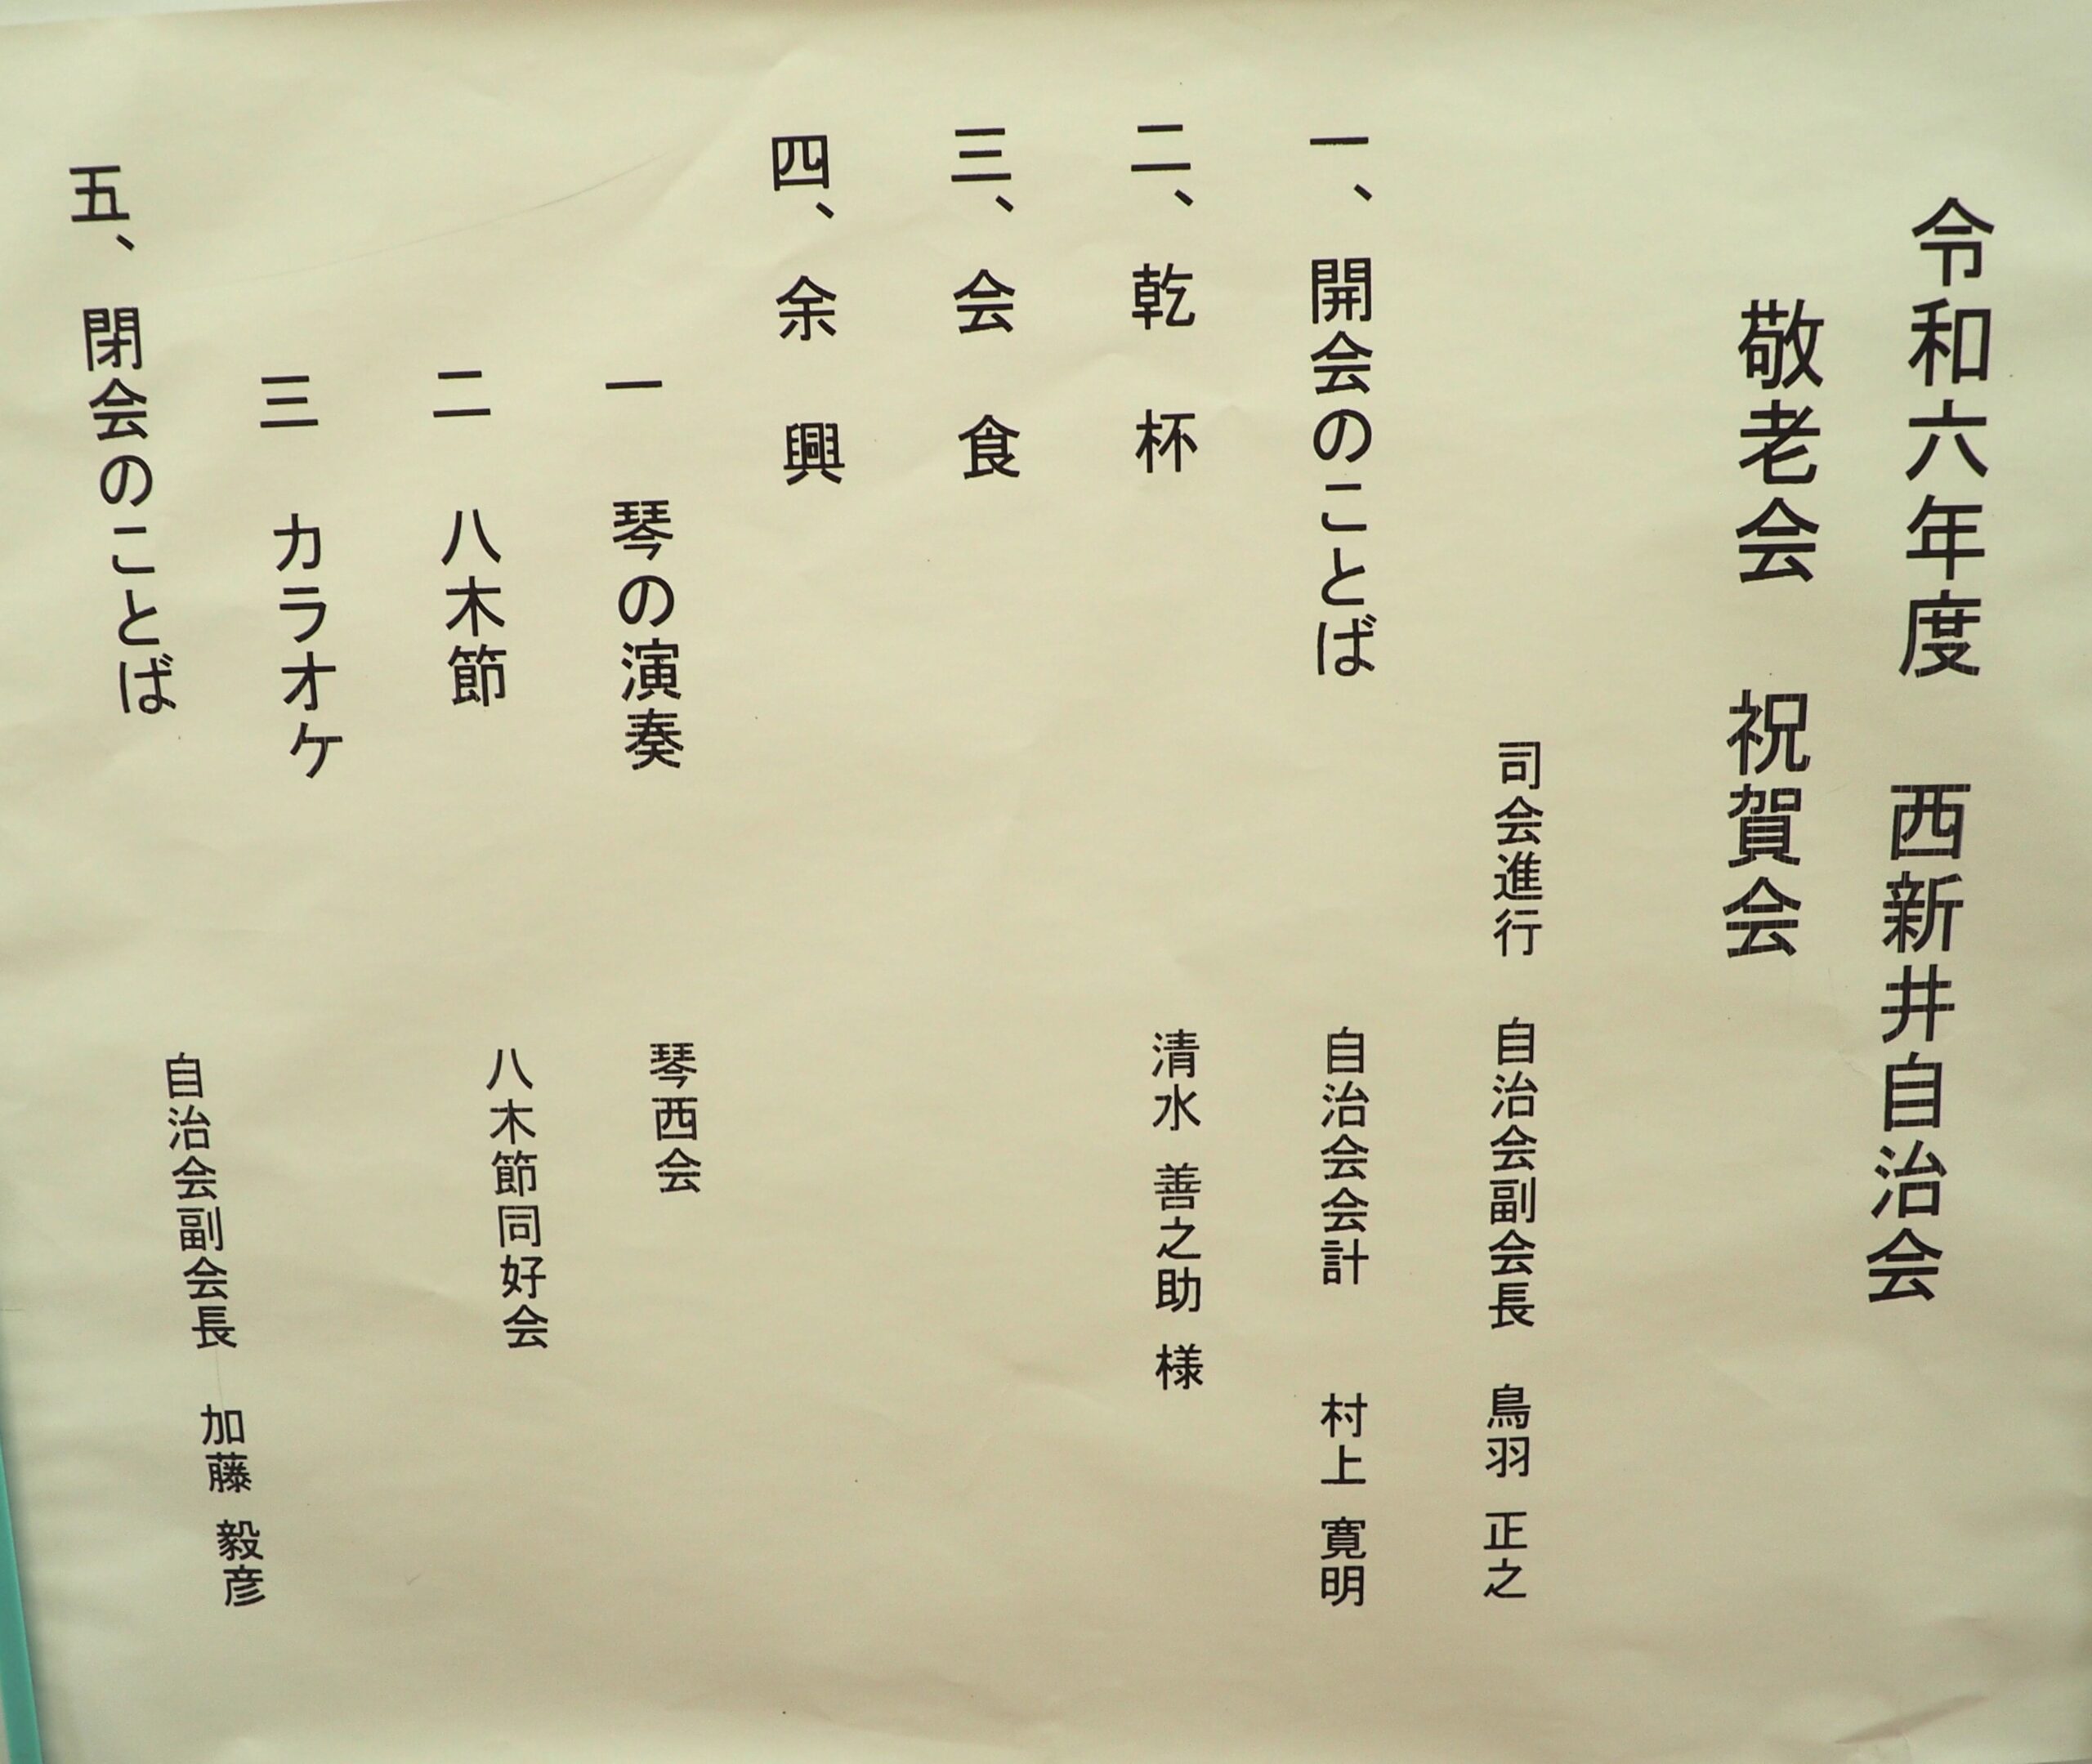 令和六年度　西新井自治会
敬老会　祝賀会
司会進行　自治会副会長　鳥羽 正之
一、開会のことば　自治会会計　村上 寛明
二、乾　杯　清水 善之助 様
三、会　食
四、余　興
一　琴の演奏　琴西会
二　八木節　八木節同好会
三　カラオケ
五、閉会のことば　自治会副会長　加藤 毅彦